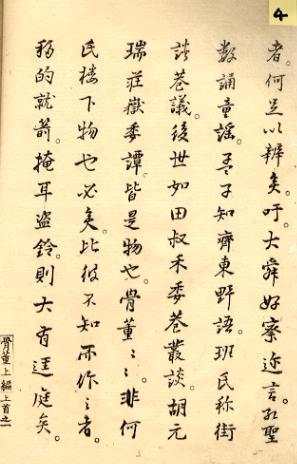 4
者。何足以辨矣。吁。大舜好察迩言。孔聖
数誦童謡。孟子知齊東野語。班氏称街
談巷議。後世如田叔禾委巷叢談。胡元
瑞荘嶽委譚。皆是物也。骨董〻〻。非何
氏楼下物也必矣。比彼不知所作之者。
移的就箭。掩耳盗鈴。則大有逕庭矣。
骨董上編上首之一